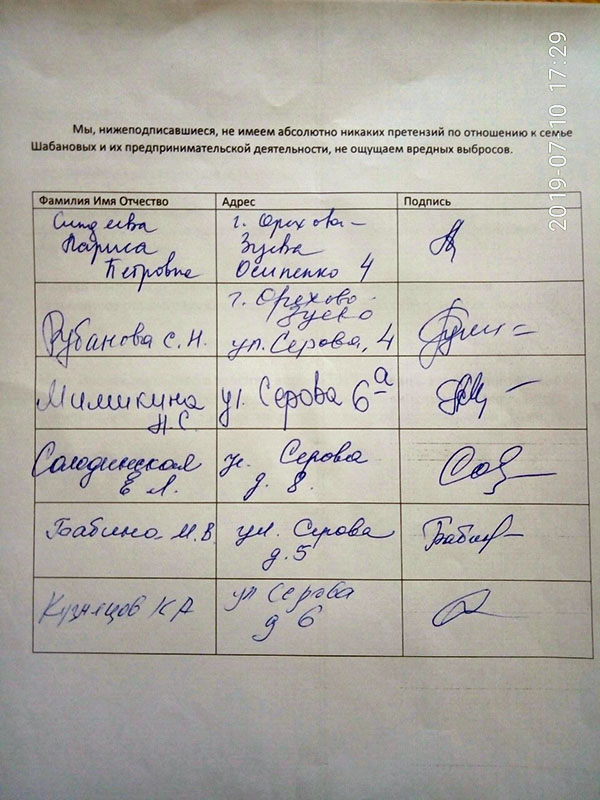 2019-07-10 17:29
Мы, нижеподписавшиеся, не имеем абсолютно никаких претензий по отношению к семье
Шабановых и их предпринимательской деятельности, не ощущаем вредных выбросов.
Фамилия Имя Отчество Адрес Подпись
г. Орехова-
Лариса Зуева
Петровна Осипенко 4
г. Орехово-
Зуево
Рубанова С. Н. ул. Серова, 4
Мимикина ул. Серова 6а
Н.С.
Солодинская ул. Серова
Е Л. д. 8.
Бабина М.В ул. Серова Бабин
д. 5
Кузнецов КА ул Серова
д 6